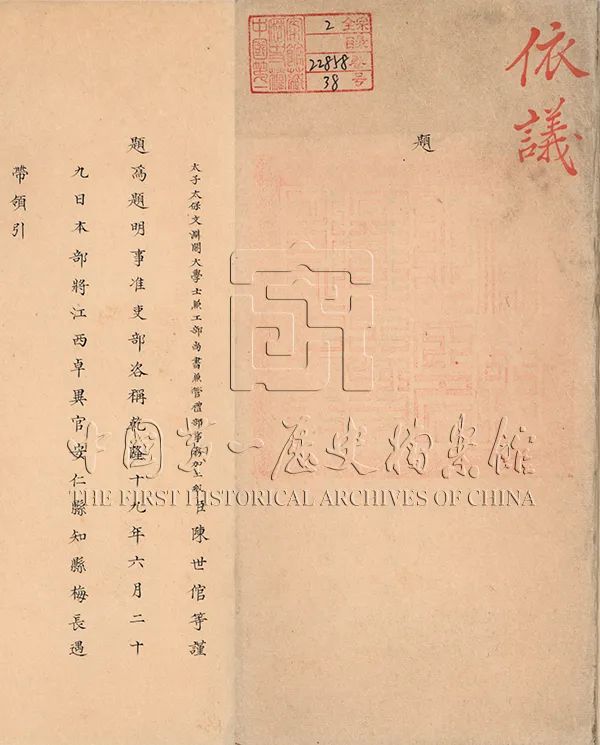 依議
2
22858
38
題
太子太保文淵閣大學士兼工部尚書兼管禮部事務加級臣陳世倌等謹
題爲題明事准吏部咨稱乾隆十九年六月二十
九日本部將江西卓異官安仁縣知縣梅長遇
帶領引
中國第一歷史檔案館
THE FIRST HISTORICAL ARCHIVES OF CHINA